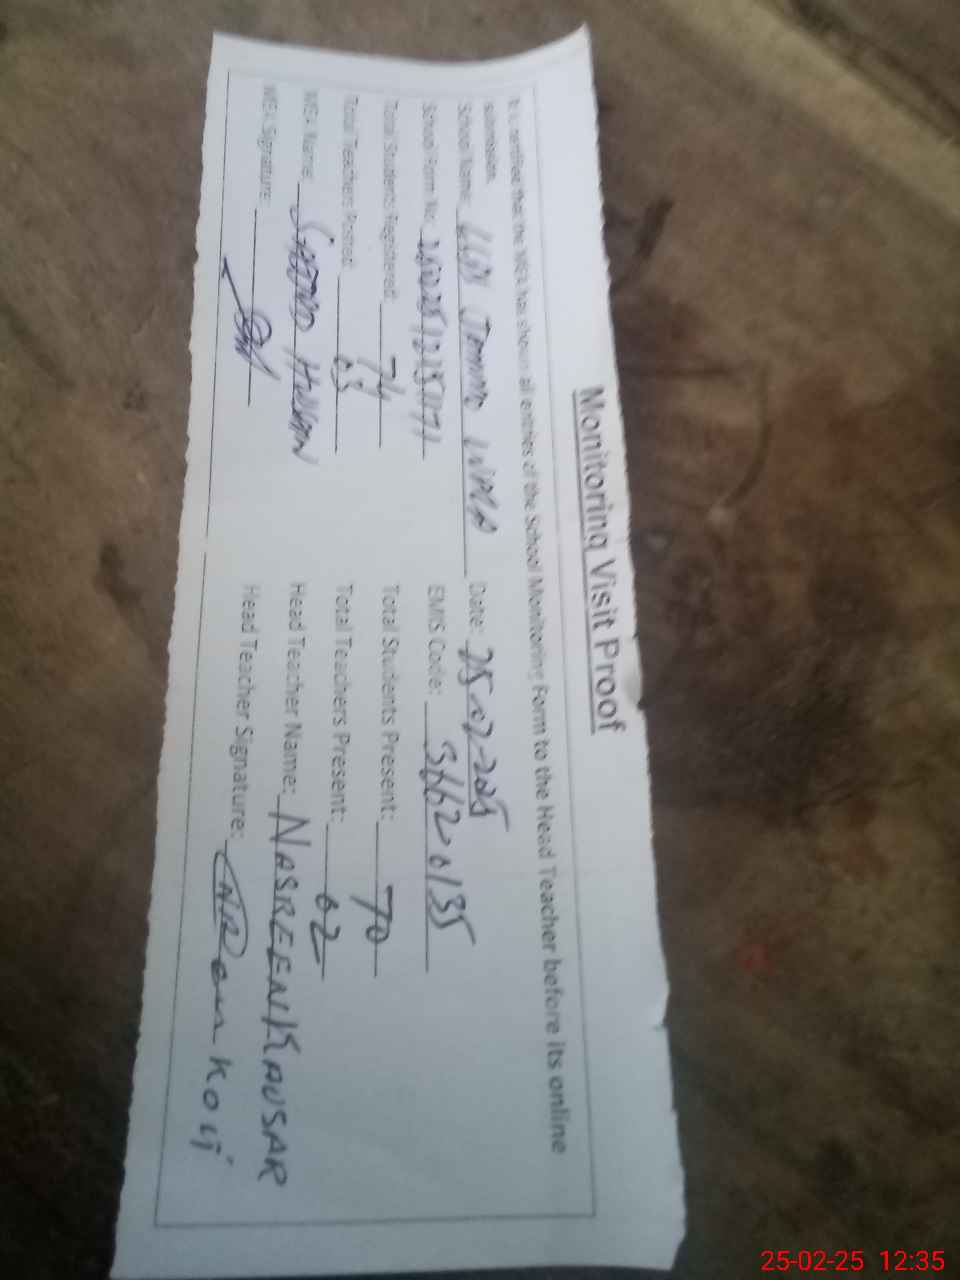 Monitoring Visit Proof
It is certified that the MEA has shown all entries of the School Monitoring Form to the Head Teacher before its online
submission.
School Name: Date: 25-02-2025
School Form No: EMIS Code: 36620135
Total Students Registered: 74 Total Students Present: 70
Total Teachers Posted: 03 Total Teachers Present: 02
MEA Name: Head Teacher Name: NASREEN KAUSAR
MEA Signature: Head Teacher Signature:
25-02-25 12:35